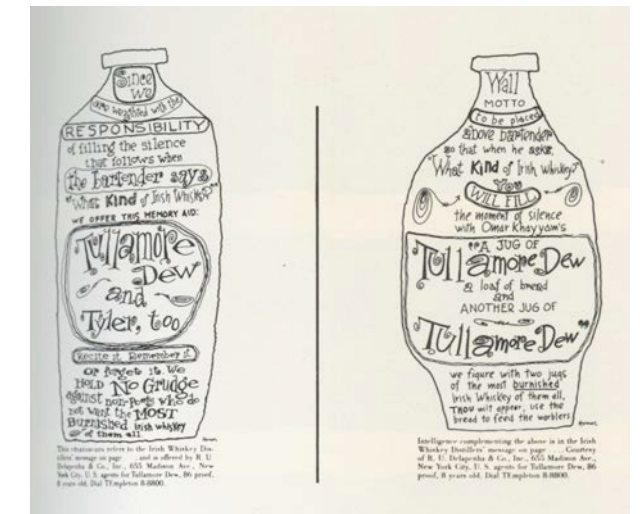 Since
we
are weighted with the
RESPONSIBILITY
of filling the silence
that follows when
the bartender says
"What Kind of Irish Whiskey?"
WE OFFER THIS MEMORY AID:
Tullamore
Dew
and
Tyler, too
Recite it. Remember it.
or forget it. We
HOLD No Grudge
against non-Poets who do
not want the MOST
Burnished Irish whiskey
of them all.
This chiaroscuro refers to the Irish Whiskey Dis-
tillers' message on page . . . . and is offered by R. U.
Delapenha & Co., Inc., 655 Madison Ave., New
York City, U. S. agents for Tullamore Dew, 86 proof,
8 years old. Dial TEmpleton 8-8800.
Wall
MOTTO
to be placed
above bartender
so that when he asks,
"What Kind of Irish Whiskey?"
YOU
WILL FILL
the moment of silence
with Omar Khayyam's
"A JUG OF
Tullamore Dew
a loaf of bread
and
ANOTHER JUG OF
Tullamore Dew"
we figure with two jugs
of the most burnished
Irish Whiskey of them all,
THOU will appear; use the
bread to feed the warblers.
Intelligence complementing the above is in the Irish
Whiskey Distillers' message on page . . . . Courtesy
of R. U. Delapenha & Co., Inc., 655 Madison Ave.,
New York City, U. S. agents for Tullamore Dew, 86
proof, 8 years old. Dial TEmpleton 8-8800.